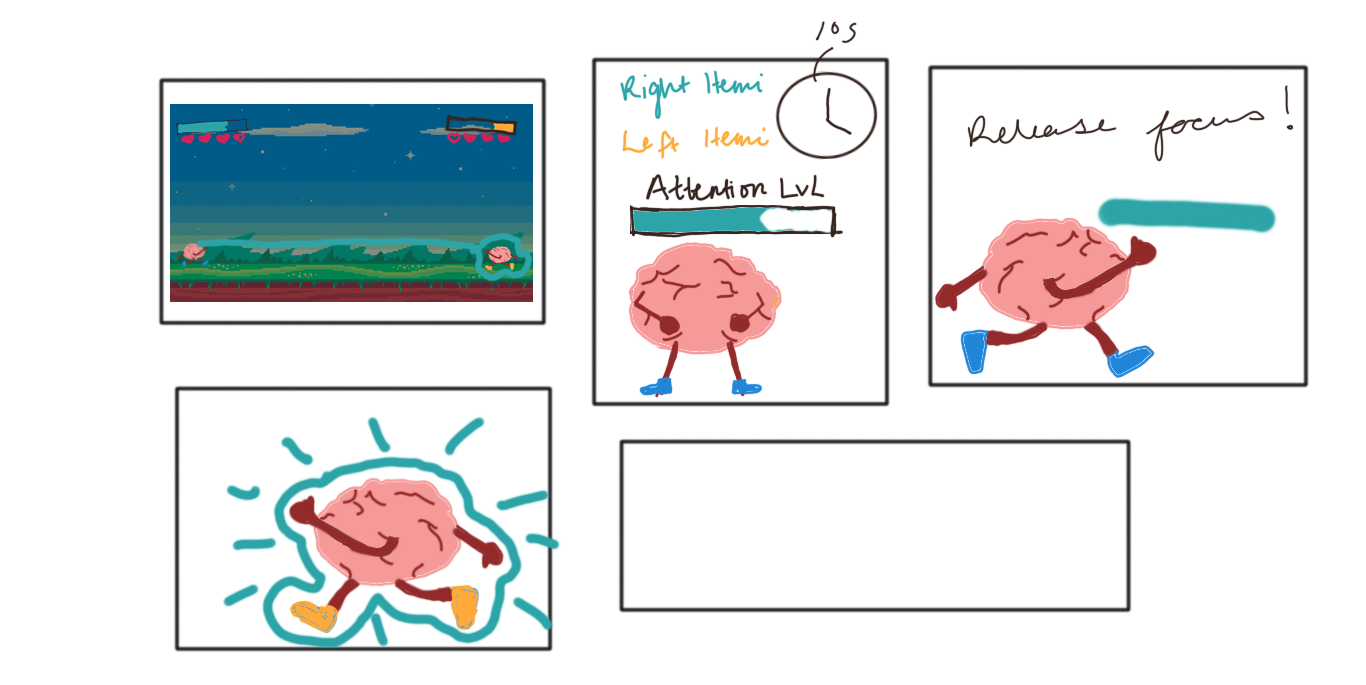 10s
Right Hemi
Left Hemi
Attention LvL
Release focus!